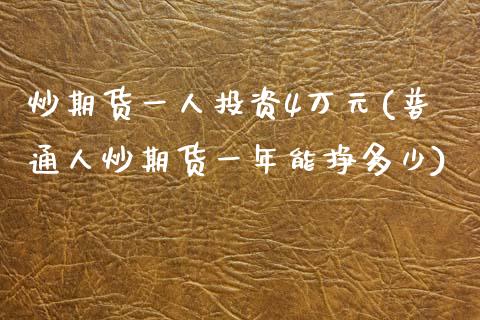 炒期货一人投资4万元(普
通人炒期货一年能挣多少)